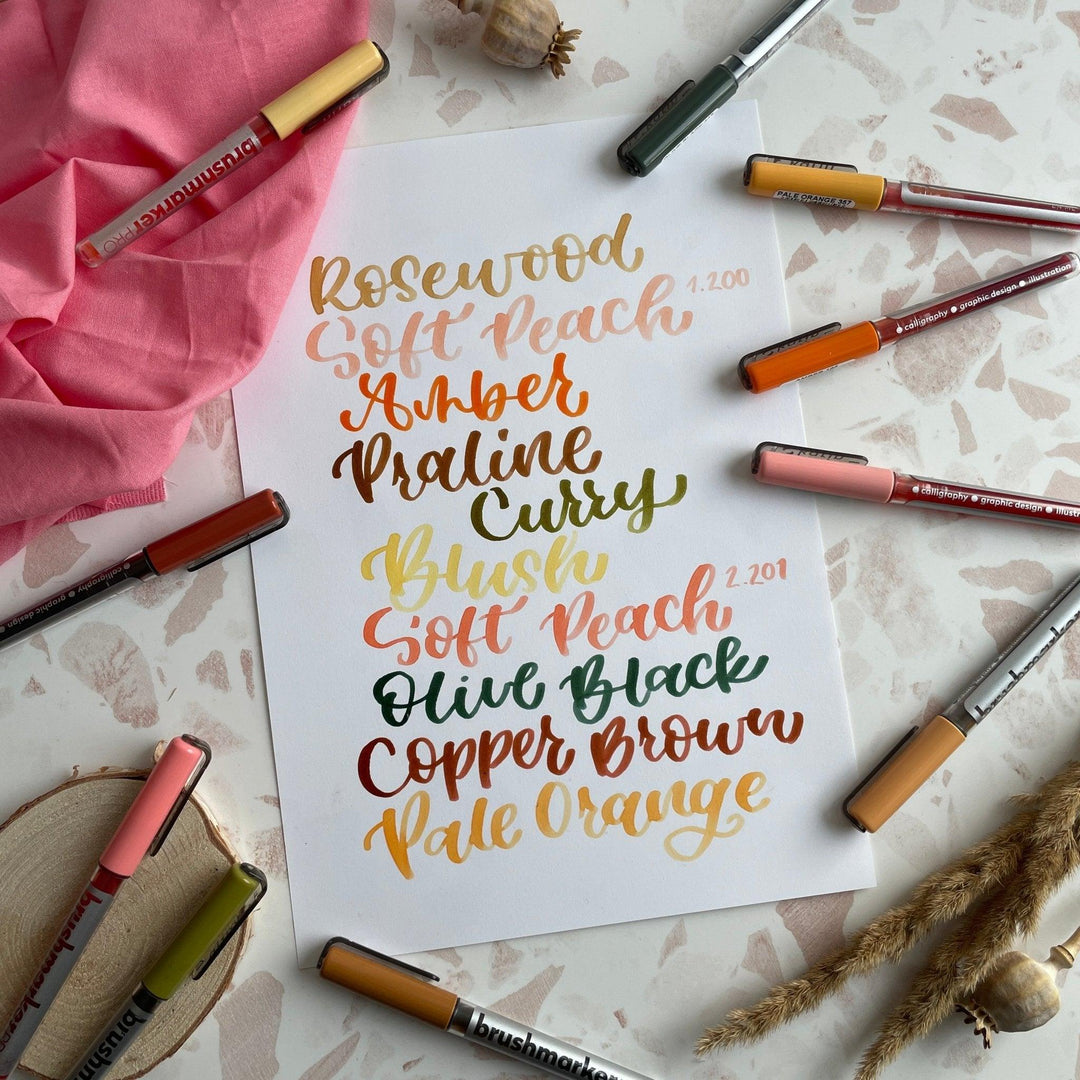 brushmarkerPRO
PALE ORANGE 367
calligraphy ● graphic design ● illustration
Rosewood
Soft Peach 1.200
Amber
Praline
Curry
Blush
Soft Peach 2.201
Olive Black
Copper Brown
Pale Orange
calligraphy ● graphic design ● illustra
calligraphy ● graphic design
brushmarke
brushmarker
brushmar
brushmarke